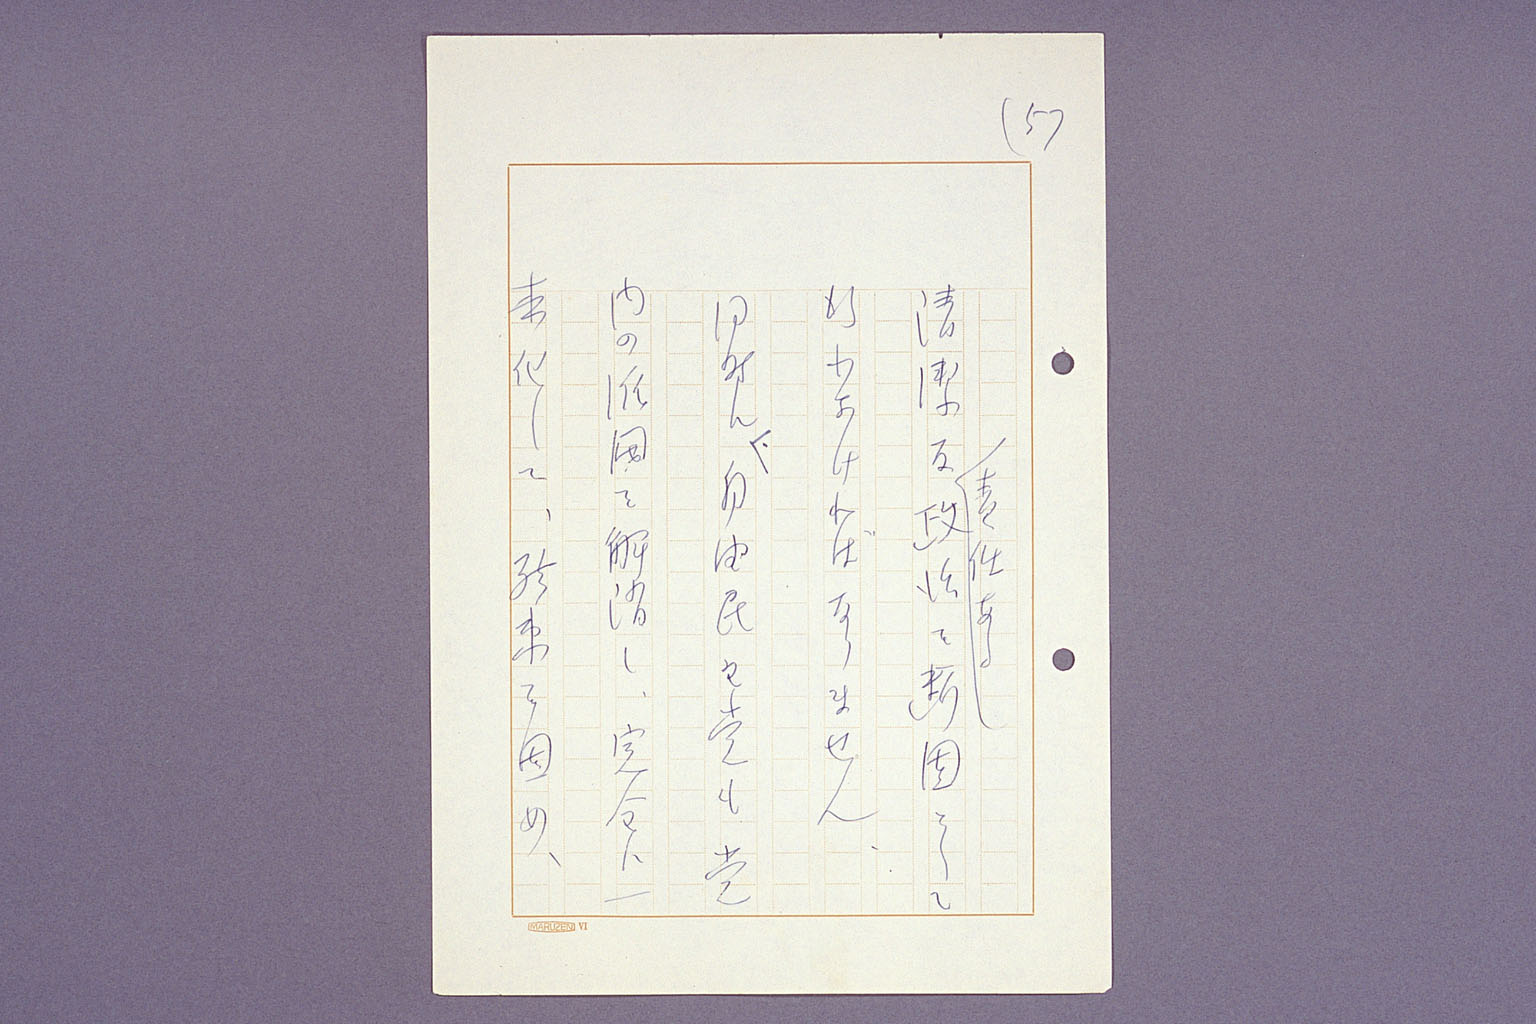 (5)
責任ある
清潔な政治を断固として
行わなければなりません。
同時に自由民主党も党
内の派閥を解消し、完全に一
本化して、結束を固め、
MARUZEN VI